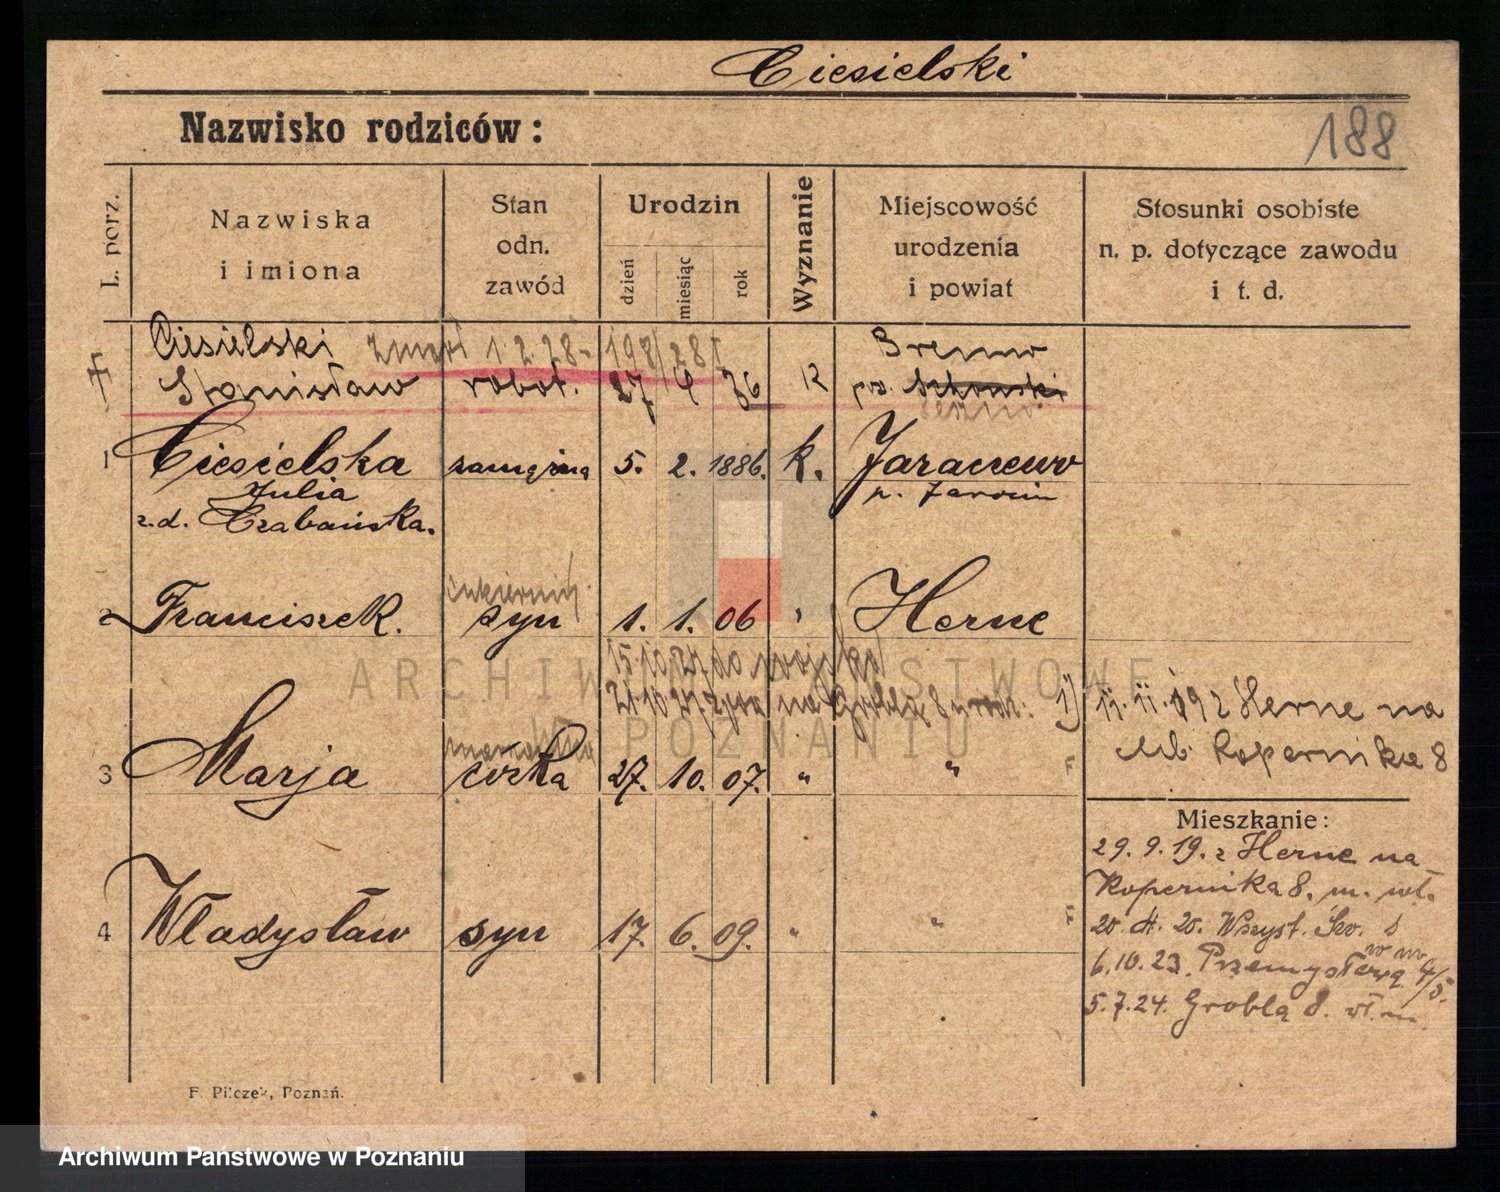 Ciesielski
Nazwisko rodziców:
188
L. porz.
Nazwiska
i imiona
Stan
odn.
zawód
Urodzin
dzień
miesiąc
rok
Wyznanie
Miejscowość
urodzenia
i powiat
Stosunki osobiste
n. p. dotyczące zawodu
i t. d.
Ciesielski zmarł 1.2.28 - 198/28 Bremno
Stanisław robot. 27 4 pow.
1 Ciesielska zamężna 5. 2. 1886. k. Jaraczewo
Julia p. Jarocin
z.d. Czabańska.
2 Franciszek. syn 1. 1. 06 " Herne
15.10.27 do
21.10.27 na Groblę 8
1) 11.11.19 z Herne na
ul. Kopernika 8
3 Marja córka 27. 10. 07. " "
Mieszkanie:
29. 9. 19. z Herne na
Kopernika 8. m. wł.
4 Władysław syn 17. 6. 09. " "
20. 4. 20. Wszyst. Św. 1
6.10.23. Przemysłową 4/5.
5.7.24. Groblą 8. wł. m.
F. Pilczek, Poznań.
ARCHIWUM PAŃSTWOWE
W POZNANIU
Archiwum Państwowe w Poznaniu